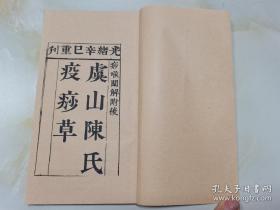 光緒辛巳重刊
痧喉闡解附後
虞山陳氏
疫痧草
孔夫子旧书网